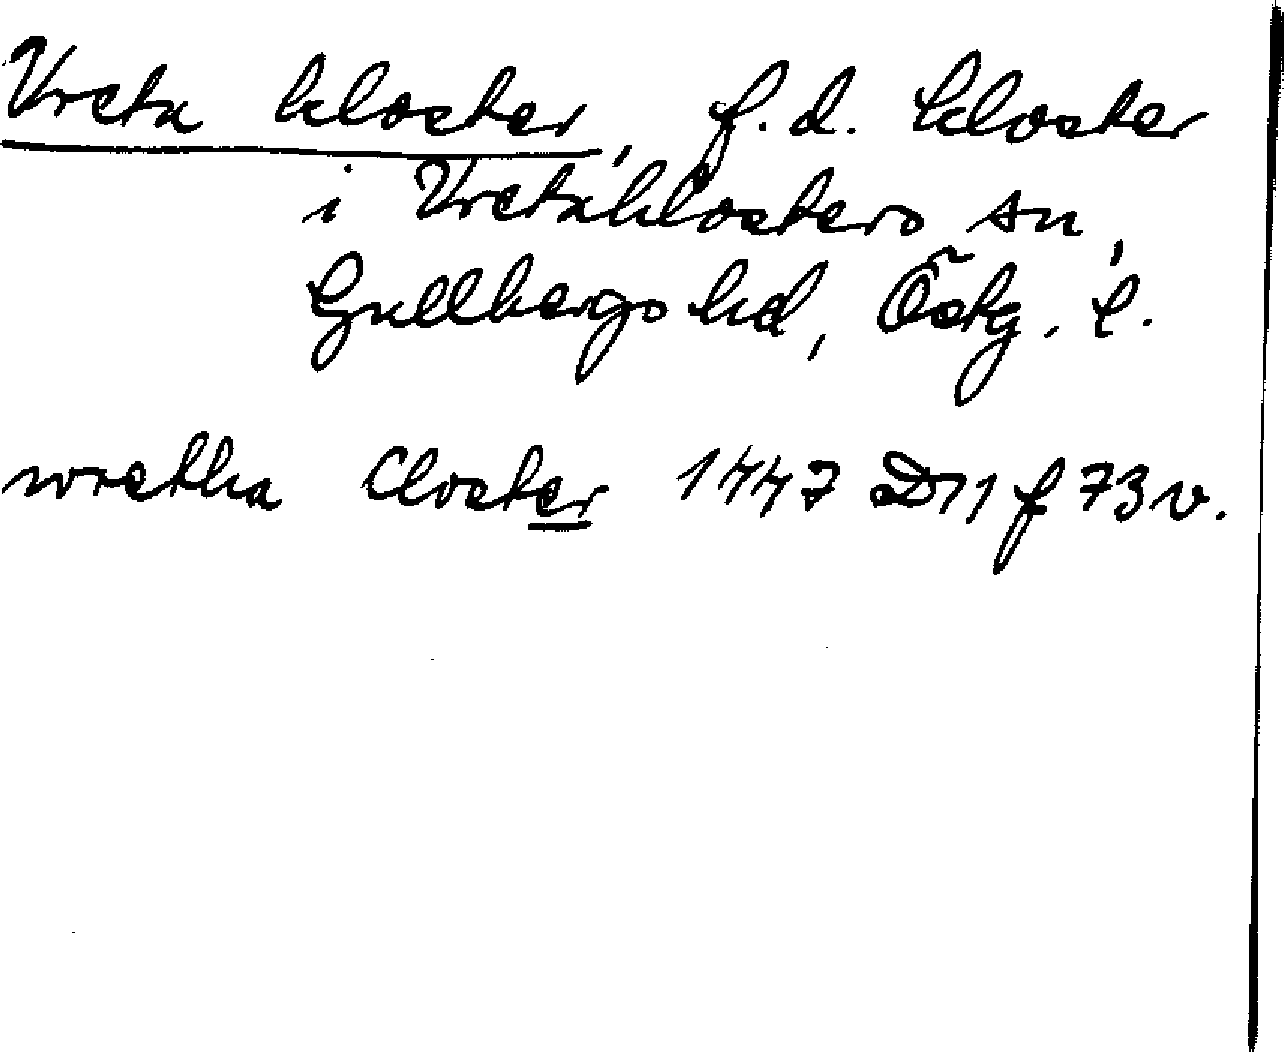 Vreta kloster, f.d. kloster
i Vretaklosters sn,
Gullbergs hd, Östg. l.
wretha Closter 1447 D11 f 73v.